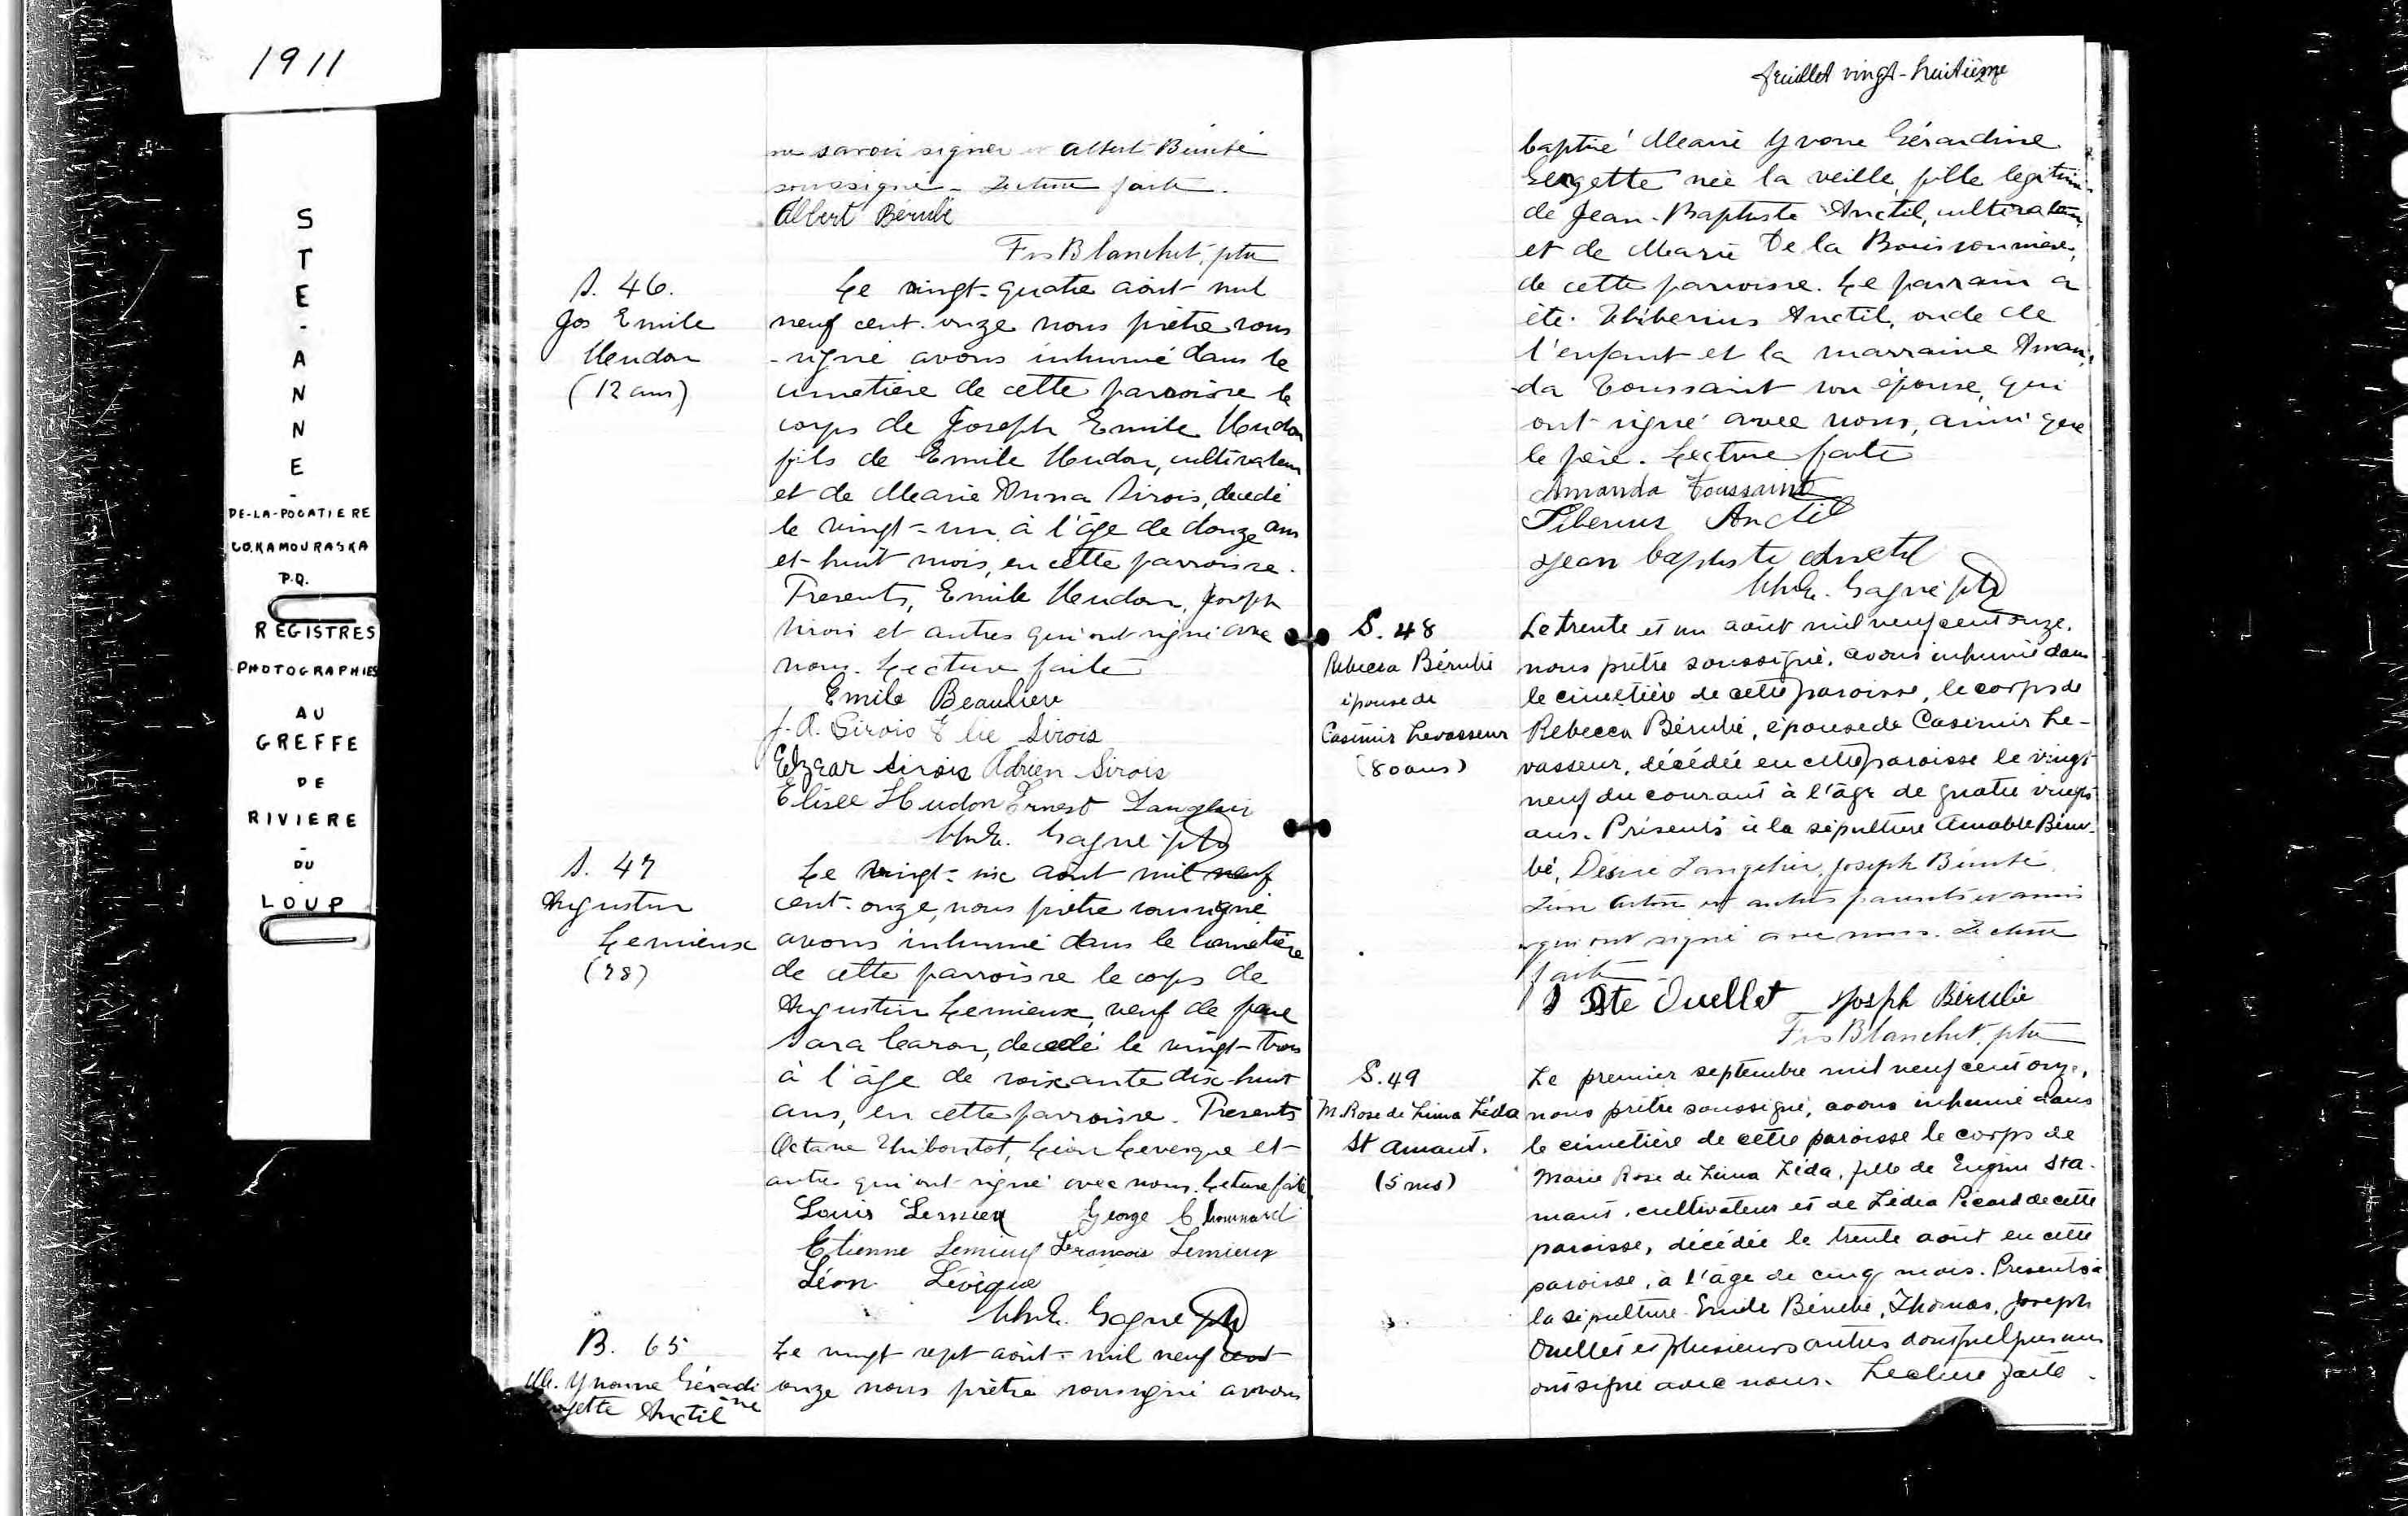 1911
STE-ANNE-
DE-LA-POCATIERE
CO. KAMOURASKA
P.Q.
REGISTRES
PHOTOGRAPHIES
AU
GREFFE
DE
RIVIERE
-
DU
-
LOUP
ne savoir signer et Albert Bérubé
soussigné - Lecture faite.
Albert Bérubé
Frs Blanchet, ptre
S. 46.
Jos Emile
Hudon
(12 ans)
Le vingt-quatre août mil
neuf cent-onze nous prêtre sous
-signé avons inhumé dans le
cimetière de cette parroisse le
corps de Joseph Emile Hudon
fils de Emile Hudon, cultivateur
et de Marie Anna Sirois, decedé
le vingt-un à l'âge de douze ans
et huit mois, en cette parroisse.
Presents, Emile Hudon, Joseph
Sirois et autres qui ont signé avec
nous. Lecture faite
Emile Beaulieu
J. A. Sirois Elie Sirois
Elzear Sirois Adrien Sirois
Elisée Hudon Ernest Langelier
Gagné ptre
S. 47
Augustin
Lemieux
(78)
Le vingt-six août mil neuf
cent-onze, nous prêtre soussigné
avons inhumé dans le cimetière
de cette parroisse le corps de
Augustin Lemieux, veuf de feue
Sara Caron, decedé le vingt-trois
à l'âge de soixante dix-huit
ans, en cette parroisse. Presents
Octave Thiboutot, Léon Levesque et
autres qui ont signé avec nous. Lecture faite
Louis Lemieux George Chouinard
Etienne Lemieux Francois Lemieux
Léon Lévêque
Gagné ptre
B. 65
M. Yvonne Gérardi
ne
gette Anctil
Le vingt sept août - mil neuf cent
onze nous prêtre soussigné avons
feuillet vingt-huitième
baptisé Marie Yvone Gérardine
Georgette née la veille, fille legitime
de Jean-Baptiste Anctil, cultivateur,
et de Marie De la Bouissonnière,
de cette parroisse. Le parrain a
été Thiberius Anctil, oncle de
l'enfant et la marraine Aman-
da Toussaint son épouse, qui
ont signé avec nous, ainsi que
le père. Lecture faite
Amanda Toussaint
Tiberius Anctil
Jean baptiste Anctil
Gagné ptre
S. 48
Rebecca Bérubé
épouse de
Casimir Levasseur
(80 ans)
Le trente et un août mil neuf cent onze,
nous prêtre soussigné, avons inhumé dans
le cimetière de cette paroisse, le corps de
Rebecca Bérubé, épouse de Casimir Le-
vasseur, décédée en cette paroisse le vingt
neuf du courant à l'âge de quatre vingts
ans. Présents à la sépulture Amable Béru-
bé, Désiré Langelier, Joseph Bérubé,
et autres parents et amis
qui ont signé avec nous. Lecture
faite
J Bte Ouellet Joseph Bérubé
Frs Blanchet, ptre
S. 49
M. Rose de Lima Léda
St Amant.
(5 ms)
Le premier septembre mil neuf cent onze,
nous prêtre soussigné, avons inhumé dans
le cimetière de cette paroisse le corps de
Marie Rose de Lima Léda, fille de Eugène Sta-
mant, cultivateur et de Lédia Picard de cette
paroisse, décédée le trente août en cette
paroisse, à l'âge de cinq mois. Présents à
la sépulture Emile Bérubé, Thomas, Joseph
Ouellet et plusieurs autres dont quelques uns
ont signé avec nous. Lecture faite.